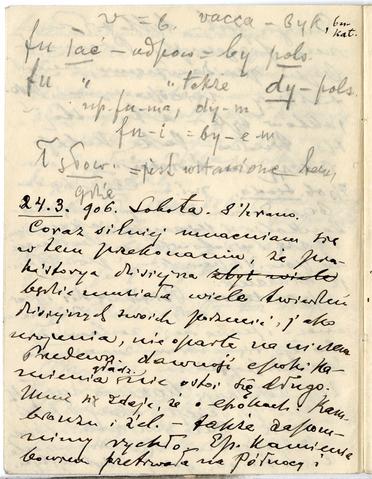 v = b. vacca – byk, bu-
kat.
fu łac – odpow = by pols.
fu " " także dy – pols.
np. fu-ma, dy-m
fu-i = by-e-m
T słow. = jest wstawione tam,
gdzie
24.3. 906. Sobota. 8½ rano.
Coraz silniej umacniam się
w tem przekonaniu, że pra-
historya dzisiejsza zbyt wiele
będzie musiała wiele twierdzeń
dzisiejszych swoich porzucić, jako
urojenia, nie oparte na niczem
Przedewsz. dawność epoki ka-
mienia gładz. nie ostoi się długo.
Mnie się zdaje, że o epokach: Kam.
bronzu i żel. – także zapom-
nimy rychło. Ep. Kamienia
bowiem przetrwała na Północy i